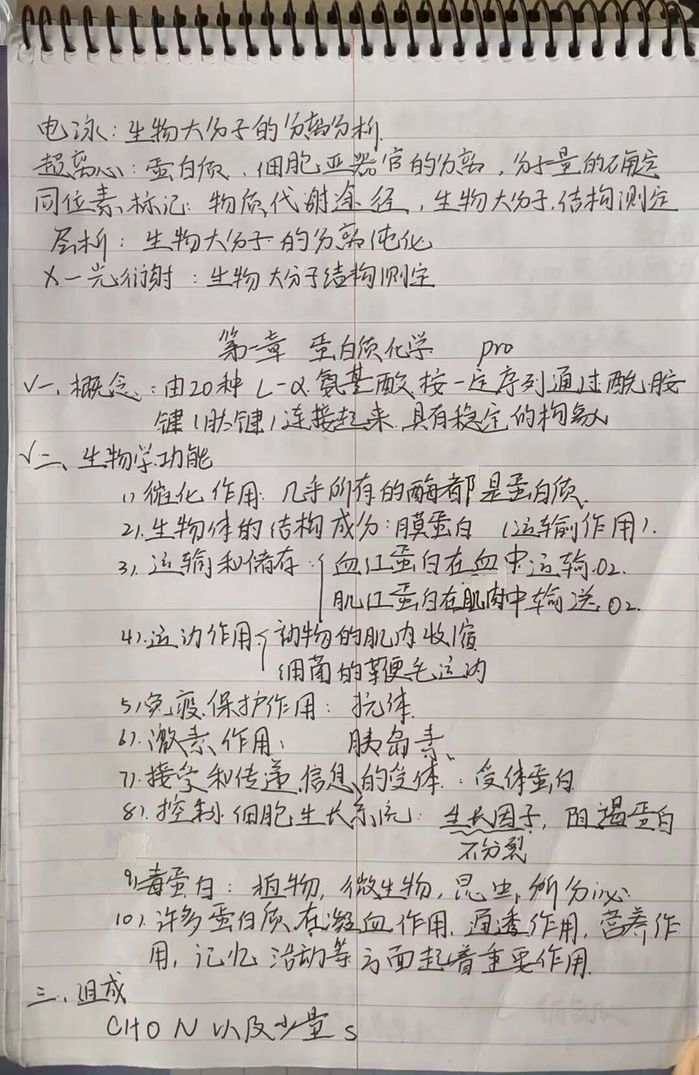 电泳：生物大分子的分离分析.
超离心：蛋白质、细胞亚器官的分离，分子量的确定
同位素标记：物质代谢途径，生物大分子结构测定
层析：生物大分子的分离纯化
X-光衍射：生物大分子结构测定
第一章 蛋白质化学 pro
√一、概念：由20种L-α氨基酸按一定序列通过酰胺
键(肽键)连接起来具有稳定的构象
√二、生物学功能
1) 催化作用：几乎所有的酶都是蛋白质.
2). 生物体的结构成分：膜蛋白 (运输副作用).
3). 运输和储存：{血红蛋白在血中运输O2.
肌红蛋白在肌肉中输送O2.
4). 运动作用{动物的肌肉收缩
细菌的鞭毛运动
5) 免疫保护作用：抗体.
6). 激素作用： 胰岛素、
7). 接受和传递信息的受体：受体蛋白
8). 控制细胞生长系统：生长因子，阻遏蛋白
不分裂
9) 毒蛋白：植物，微生物，昆虫，所分泌
10). 许多蛋白质在凝血作用，通透作用，营养作
用，记忆活动等方面起着重要作用.
三、组成
CHON以及少量S